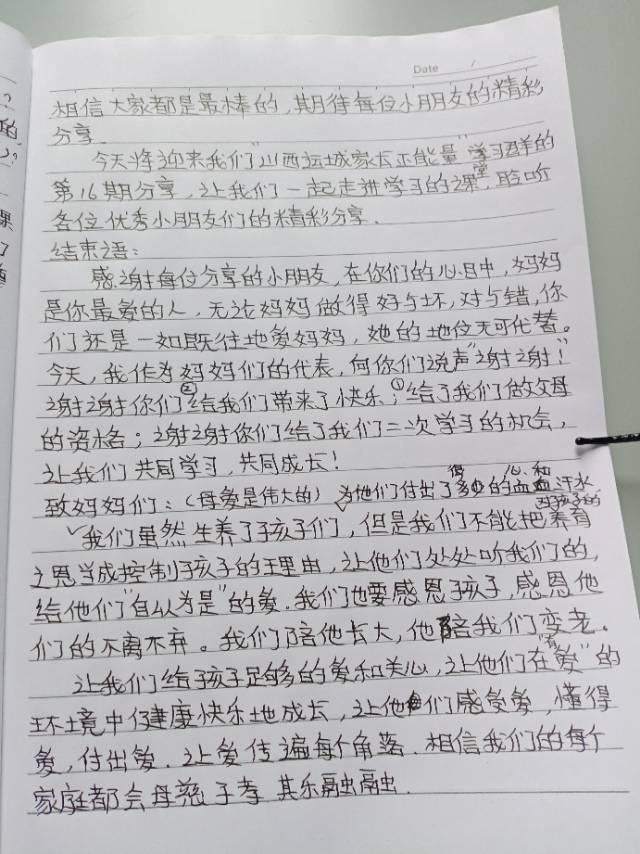 Date
相信大家都是最棒的,期待每位小朋友的精彩
分享.
今天将迎来我们"山西运城家长正能量"学习群的
第16期分享,让我们一起走进学习的课堂,聆听
各位优秀小朋友们的精彩分享.
结束语:
感谢每位分享的小朋友,在你们的心目中,妈妈
是你最爱的人,无论妈妈做得好与坏,对与错,你
们还是一如既往地爱妈妈,她的地位无可代替。
今天,我作为妈妈们的代表,向你们说声"谢谢!"
谢谢你们②给我们带来了快乐;①给了我们做父母
的资格;谢谢你们给了我们二次学习的机会,
让我们共同学习,共同成长!
致妈妈们:(母爱是伟大的)为他们付出了多少的心血和汗水
✓我们虽然生养了孩子们,但是我们不能把养育
之恩当成控制孩子的理由,让他们处处听我们的,
给他们"自以为是"的爱.我们也要感恩孩子,感恩他
们的不离不弃。我们陪他长大,他陪我们变老。
让我们给孩子足够的爱和关心,让他们在"有爱"的
环境中健康快乐地成长,让他们感受爱,懂得
爱,付出爱.让爱传遍每个角落.相信我们的每个
家庭都会母慈子孝 其乐融融.